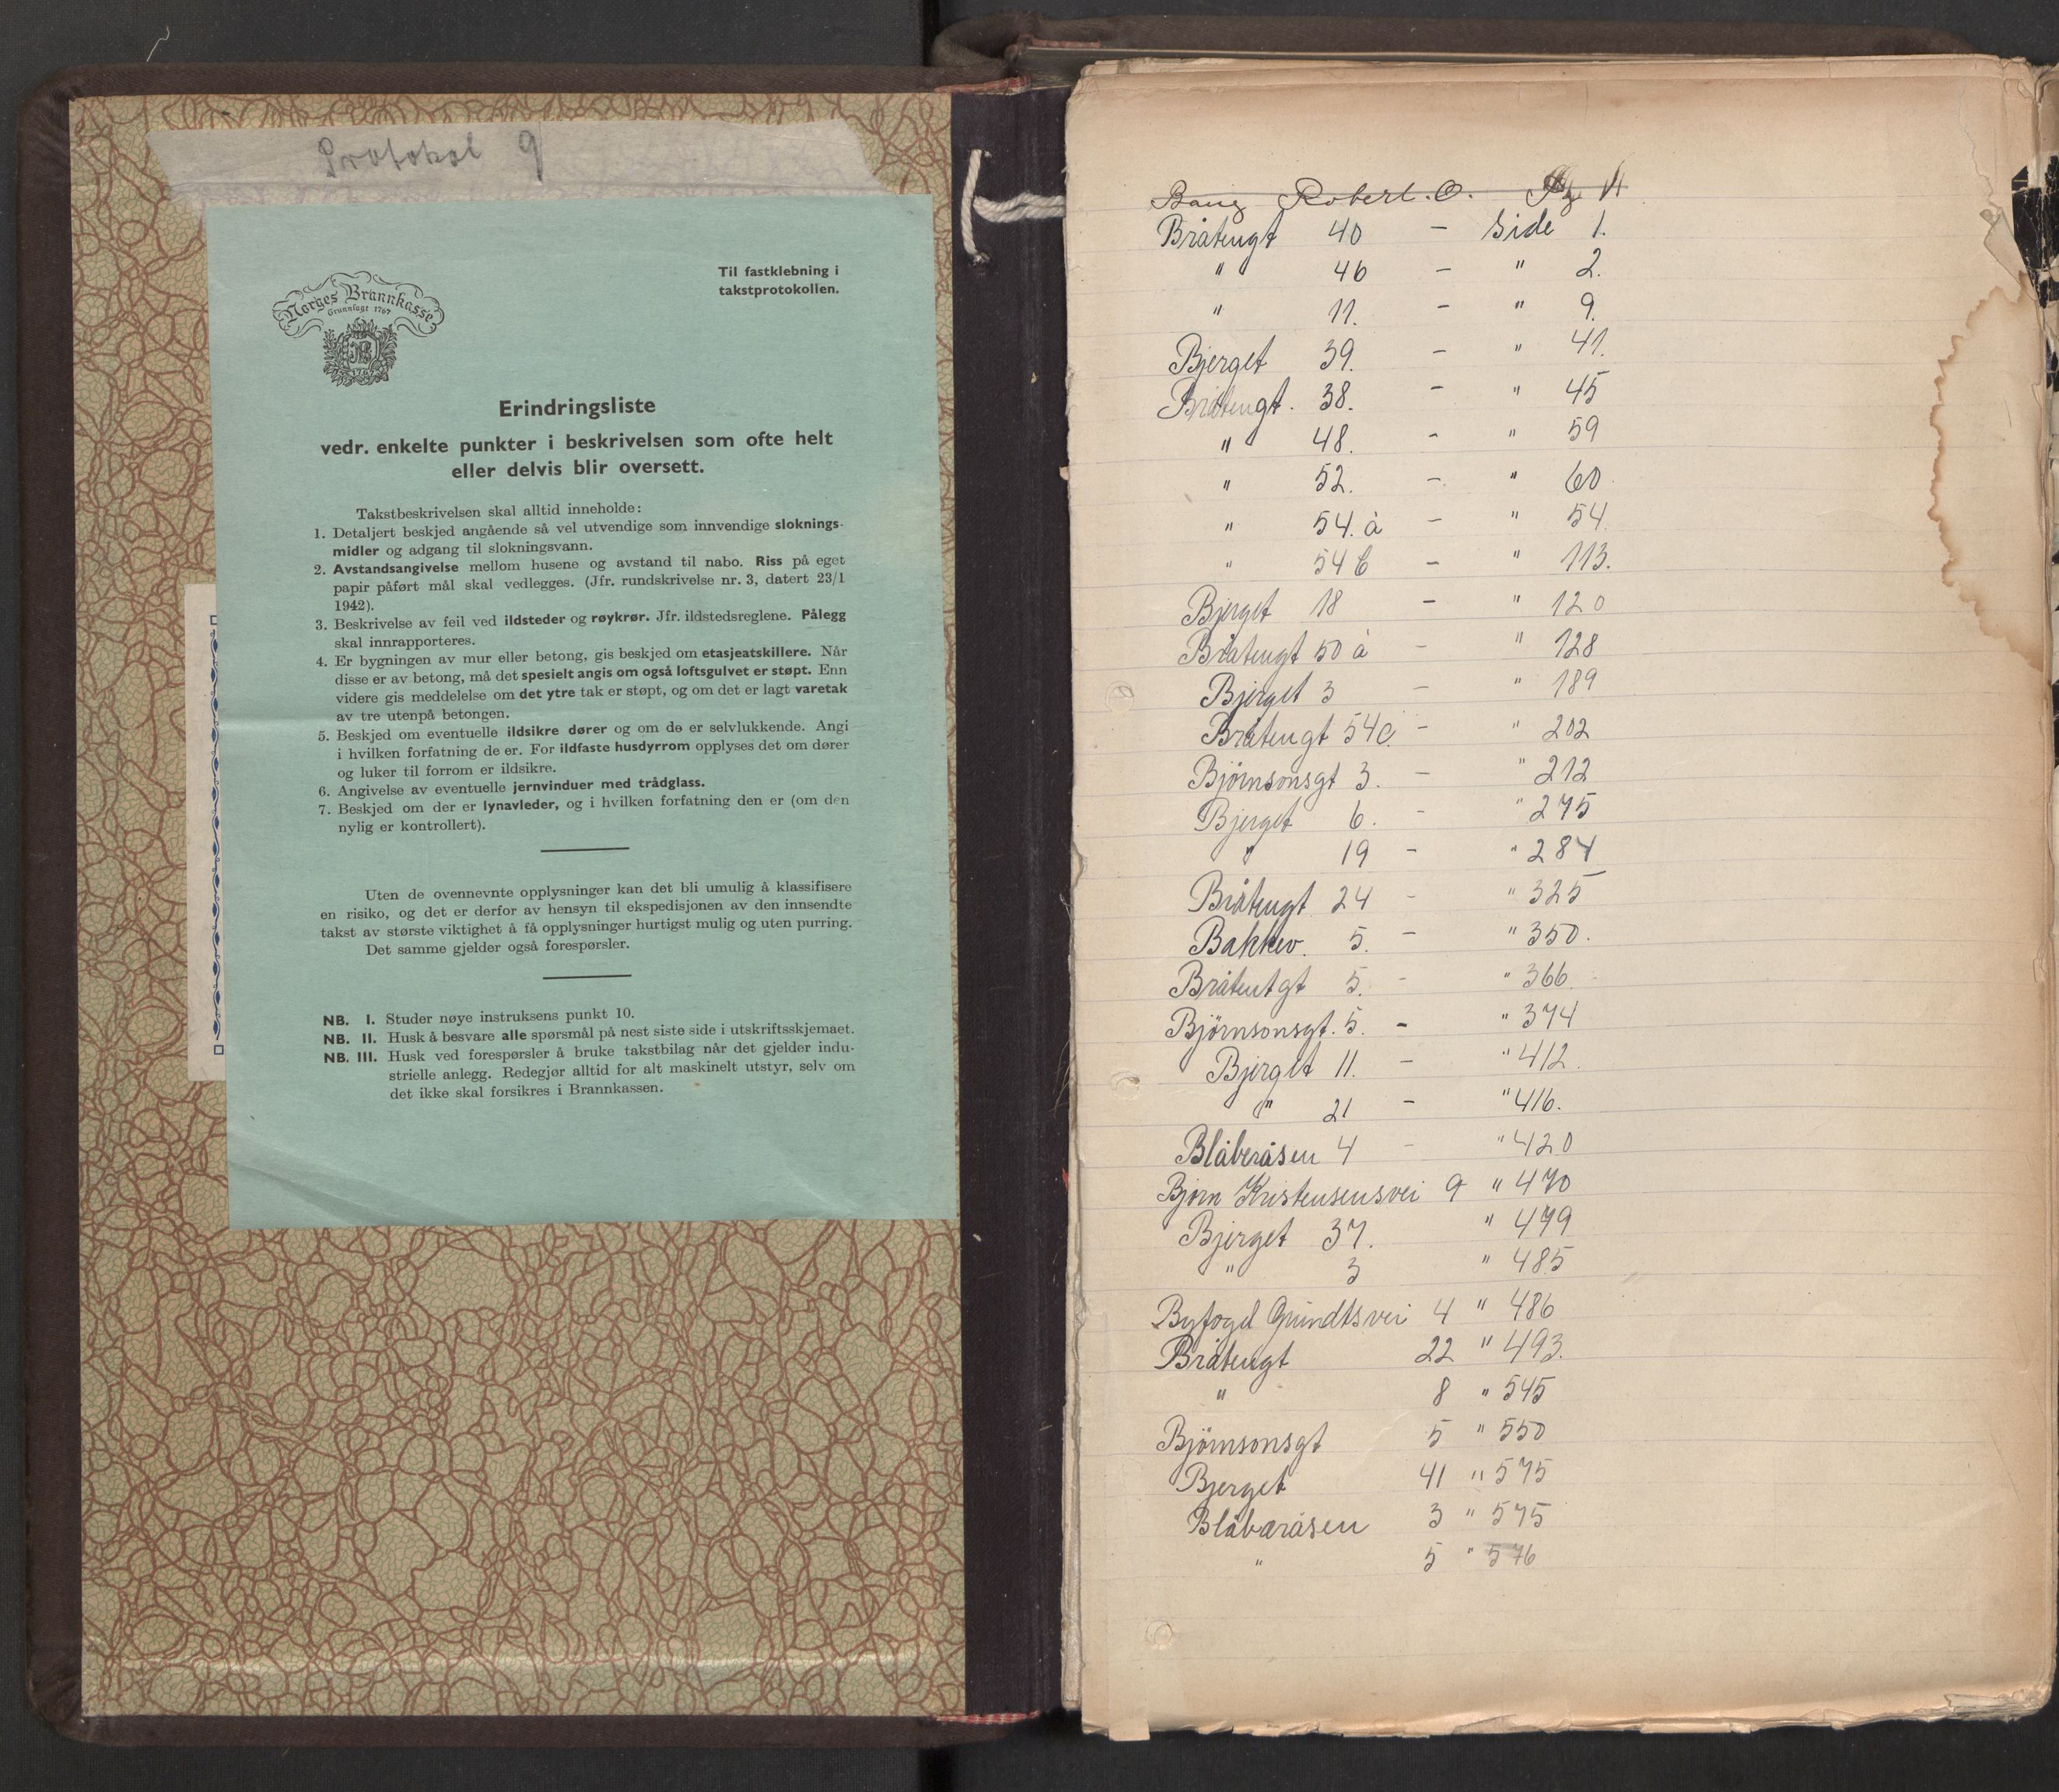 Protokol 9
Til fastklebning i
takstprotokollen.
Norges Brannkasse
Grunnlagt 1767
NB
1767
Erindringsliste
vedr. enkelte punkter i beskrivelsen som ofte helt
eller delvis blir oversett.
Takstbeskrivelsen skal alltid inneholde:
1. Detaljert beskjed angående så vel utvendige som innvendige sloknings-
midler og adgang til slokningsvann.
2. Avstandsangivelse mellom husene og avstand til nabo. Riss på eget
papir påført mål skal vedlegges. (Jfr. rundskrivelse nr. 3, datert 23/1
1942).
3. Beskrivelse av feil ved ildsteder og røykrør. Jfr. ildstedsreglene. Pålegg
skal innrapporteres.
4. Er bygningen av mur eller betong, gis beskjed om etasjeatskillere. Når
disse er av betong, må det spesielt angis om også loftsgulvet er støpt. Enn
videre gis meddelelse om det ytre tak er støpt, og om det er lagt varetak
av tre utenpå betongen.
5. Beskjed om eventuelle ildsikre dører og om de er selvlukkende. Angi
i hvilken forfatning de er. For ildfaste husdyrrom opplyses det om dører
og luker til forrom er ildsikre.
6. Angivelse av eventuelle jernvinduer med trådglass.
7. Beskjed om der er lynavleder, og i hvilken forfatning den er (om den
nylig er kontrollert).
Uten de ovennevnte opplysninger kan det bli umulig å klassifisere
en risiko, og det er derfor av hensyn til ekspedisjonen av den innsendte
takst av største viktighet å få opplysninger hurtigst mulig og uten purring.
Det samme gjelder også forespørsler.
NB. I. Studer nøye instruksens punkt 10.
NB. II. Husk å besvare alle spørsmål på nest siste side i utskriftsskjemaet.
NB. III. Husk ved forespørsler å bruke takstbilag når det gjelder indu-
strielle anlegg. Redegjør alltid for alt maskinelt utstyr, selv om
det ikke skal forsikres i Brannkassen.
Bang Robert. O.
Bråtengt 40 - Side 1.
" 46 - " 2.
" 11. - " 9.
Bjerget 39. - " 41.
Bråtengt. 38. - " 45
" 48. - " 59
" 52. - " 60
" 54. à - " 54
" 54 b - " 113.
Bjerget 18 - " 120
Bråtengt 50 à - " 128
Bjerget 3 - " 189
Bråtengt 54 c. - " 202
Bjørnsonsgt 3. - " 212
Bjerget 6. - " 275
" 19 - " 284
Bråtengt 24 - " 325
Bakkev. 5. - " 350.
Bråtentgt 5. - " 366
Bjørnsonsgt. 5. - " 374
Bjerget 11. - " 412
" 21 - " 416.
Blåberåsen 4 - " 420
Bjørn Kristensensvei 9 " 470
Bjerget 37. " 479
" 3 " 485
Byfogd Grundtsvei 4 " 486
Bråtengt 22 " 493.
" 8 " 545
Bjørnsonsgt 5 " 550
Bjerget 41 " 575
Blåbæråsen 3 " 575
" 5 " 576